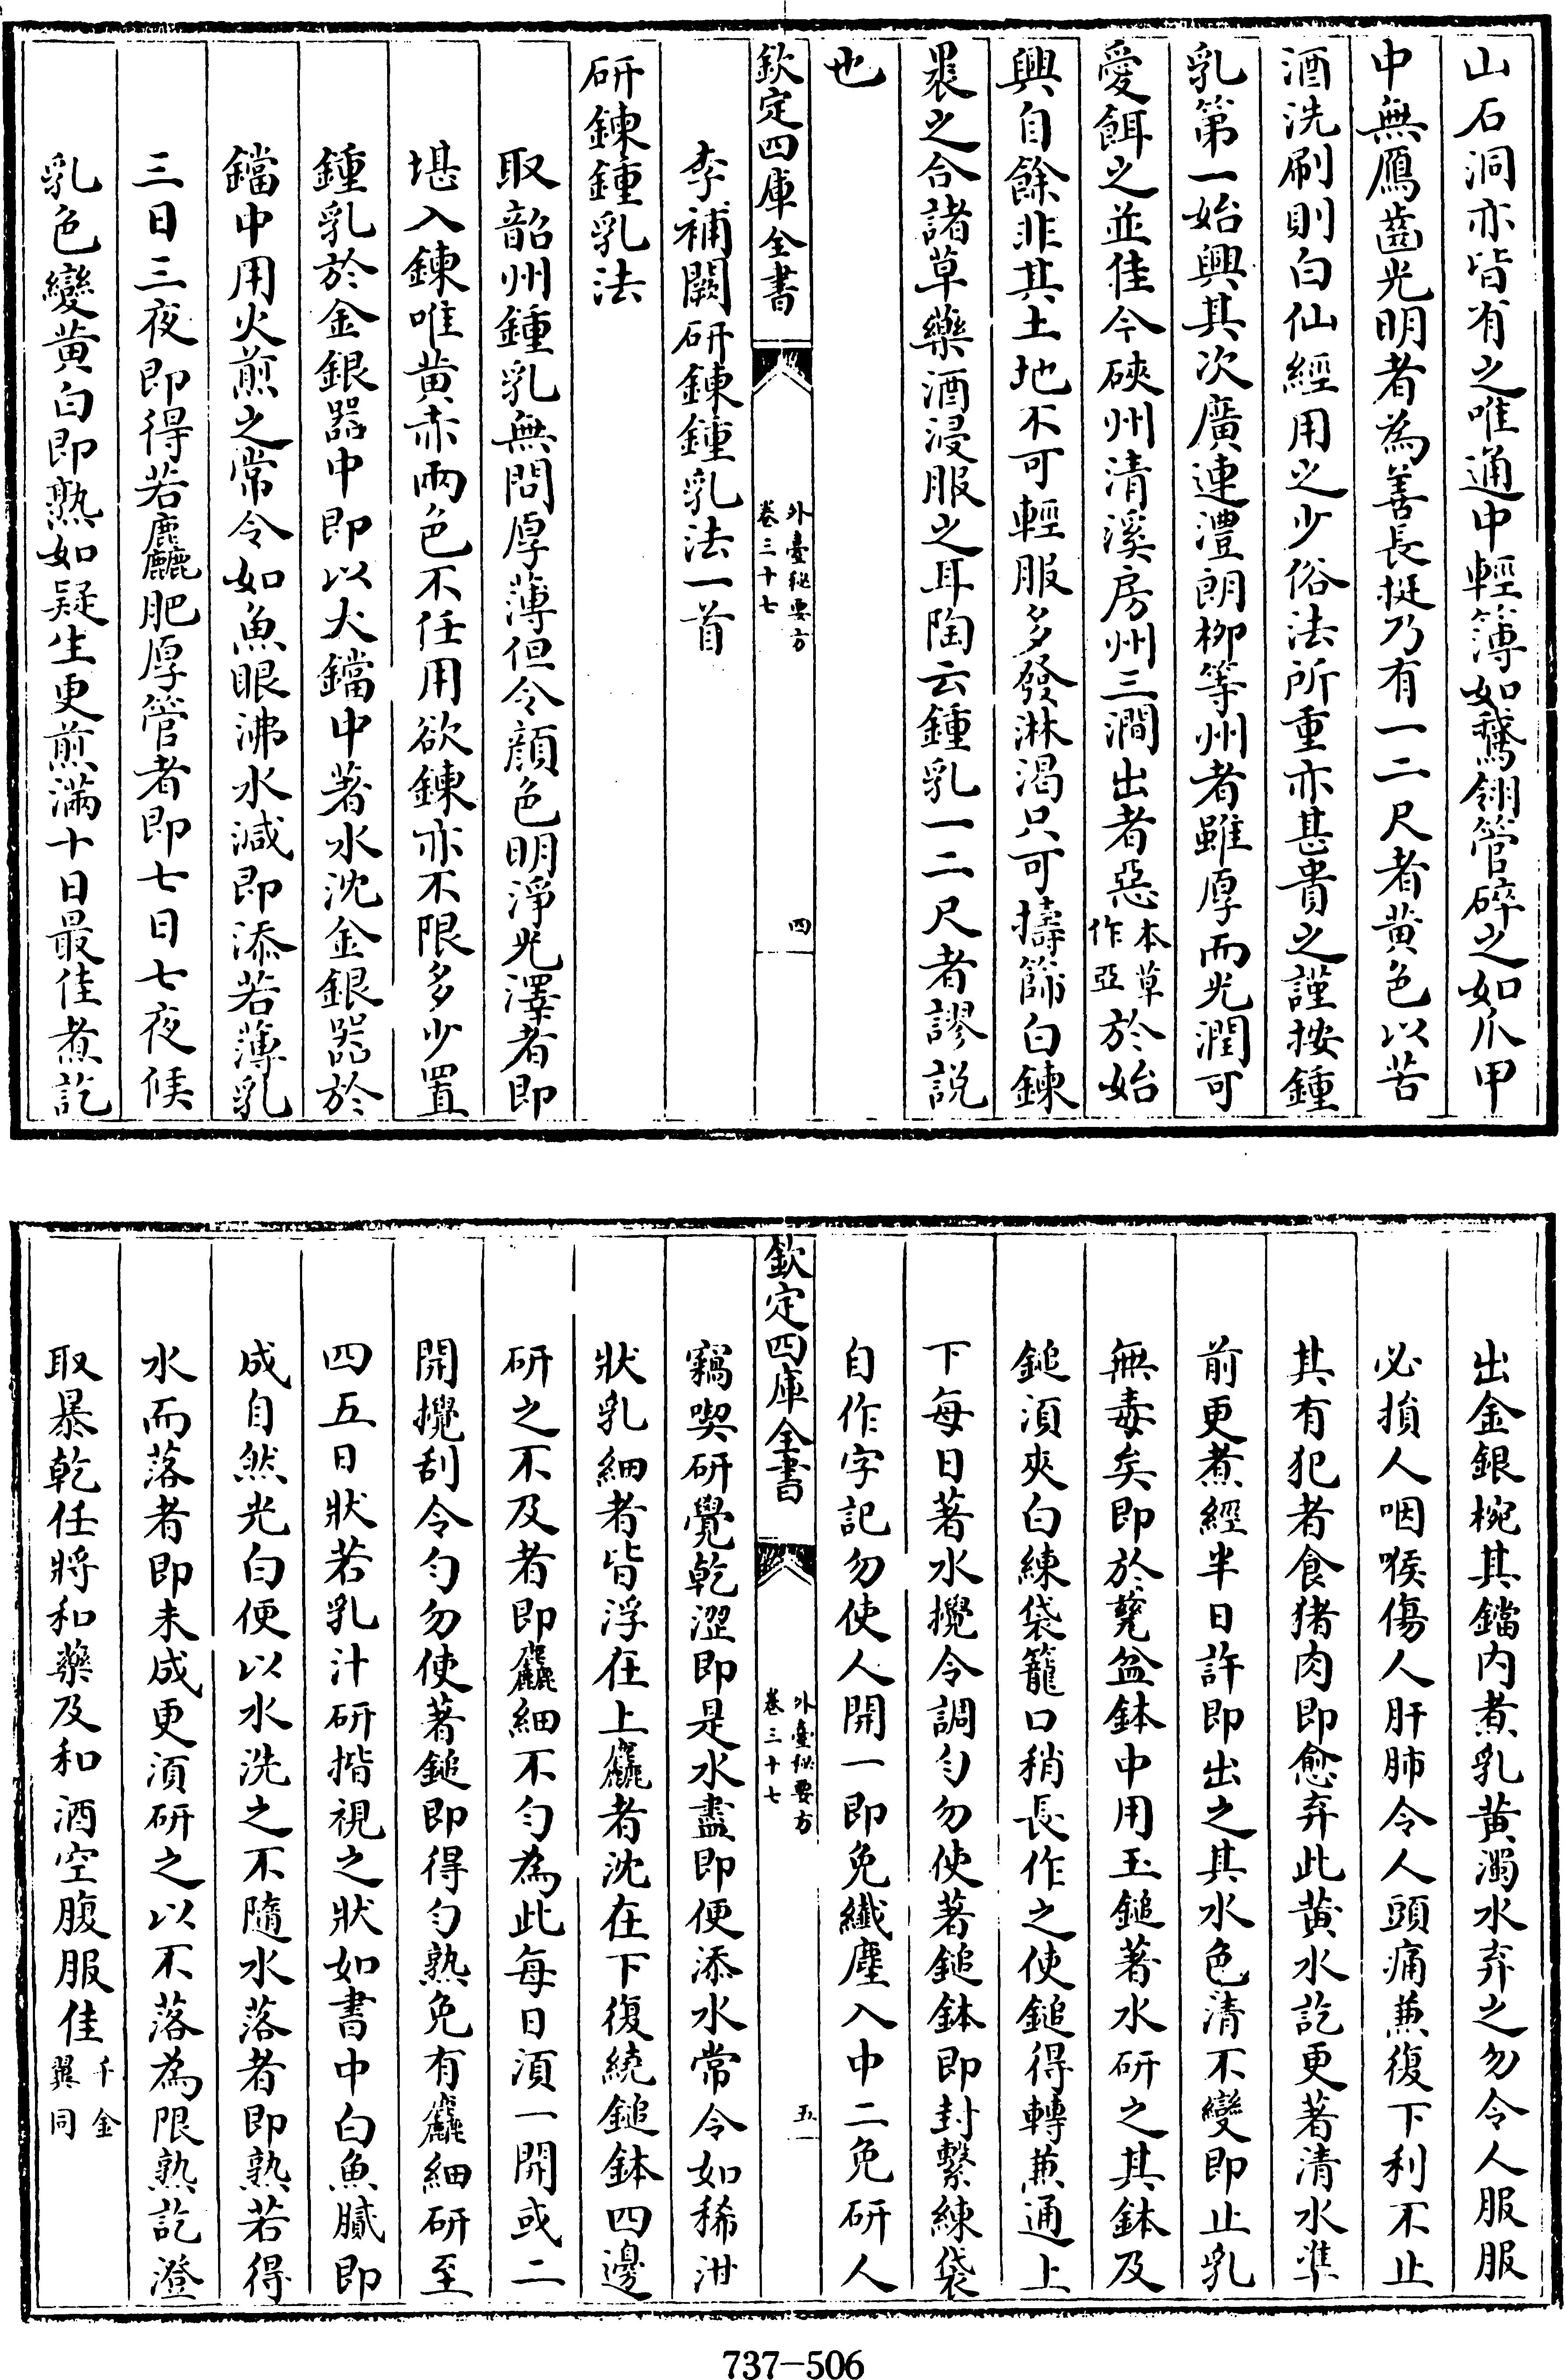 山石洞亦皆有之唯通中輕簿如鵞翎管碎之如爪甲
中無鴈齒光明者為善長挺乃有一二尺者黄色以苦
酒洗刷則白仙經用之少俗法所重亦甚貴之謹按鍾
乳第一始興其次廣連澧朗柳等州者雖厚而光潤可
愛餌之並佳今硤州清溪房州三澗出者惡本草作亞於始
興自餘非其土地不可輕服多發淋渴只可擣篩白鍊
裹之合諸草藥酒浸服之耳陶云鍾乳一二尺者謬説
也
欽定四庫全書
外臺秘要方
卷三十七
四
李補闕研鍊鍾乳法一首
研鍊鍾乳法
取韶州鍾乳無問厚薄但令顔色明淨光澤者即
堪入鍊唯黄赤兩色不任用欲鍊亦不限多少置
鍾乳於金銀器中即以大鐺中著水沈金銀器於
鐺中用火煎之常令如魚眼沸水減即添若薄乳
三日三夜即得若麤肥厚管者即七日七夜候
乳色變黄白即熟如疑生更煎滿十日最佳煮訖
出金銀椀其鐺内煮乳黄濁水弃之勿令人服服
必損人咽喉傷人肝肺令人頭痛兼復下利不止
其有犯者食猪肉即愈弃此黄水訖更著清水準
前更煮經半日許即出之其水色清不變即止乳
無毒矣即於甆盆鉢中用玉鎚著水研之其鉢及
鎚湏夾白練袋籠口稍長作之使鎚得轉兼通上
下每日著水攪令調勻勿使著鎚鉢即封繫練袋
自作字記勿使人開一即免纖塵入中二免研人
欽定四庫全書
外臺秘要方
卷三十七
五
竊喫研覺乾澀即是水盡即便添水常令如稀泔
狀乳細者皆浮在上麤者沈在下復繞鎚鉢四邊
研之不及者即麤細不勻為此每日湏一開或二
開攪刮令勻勿使著鎚即得勻熟免有麤細研至
四五日狀若乳汁研揩視之狀如書中白魚膩即
成自然光白便以水洗之不隨水落者即熟若得
水而落者即未成更湏研之以不落為限熟訖澄
取暴乾任將和藥及和酒空腹服佳千金翼同
737-506